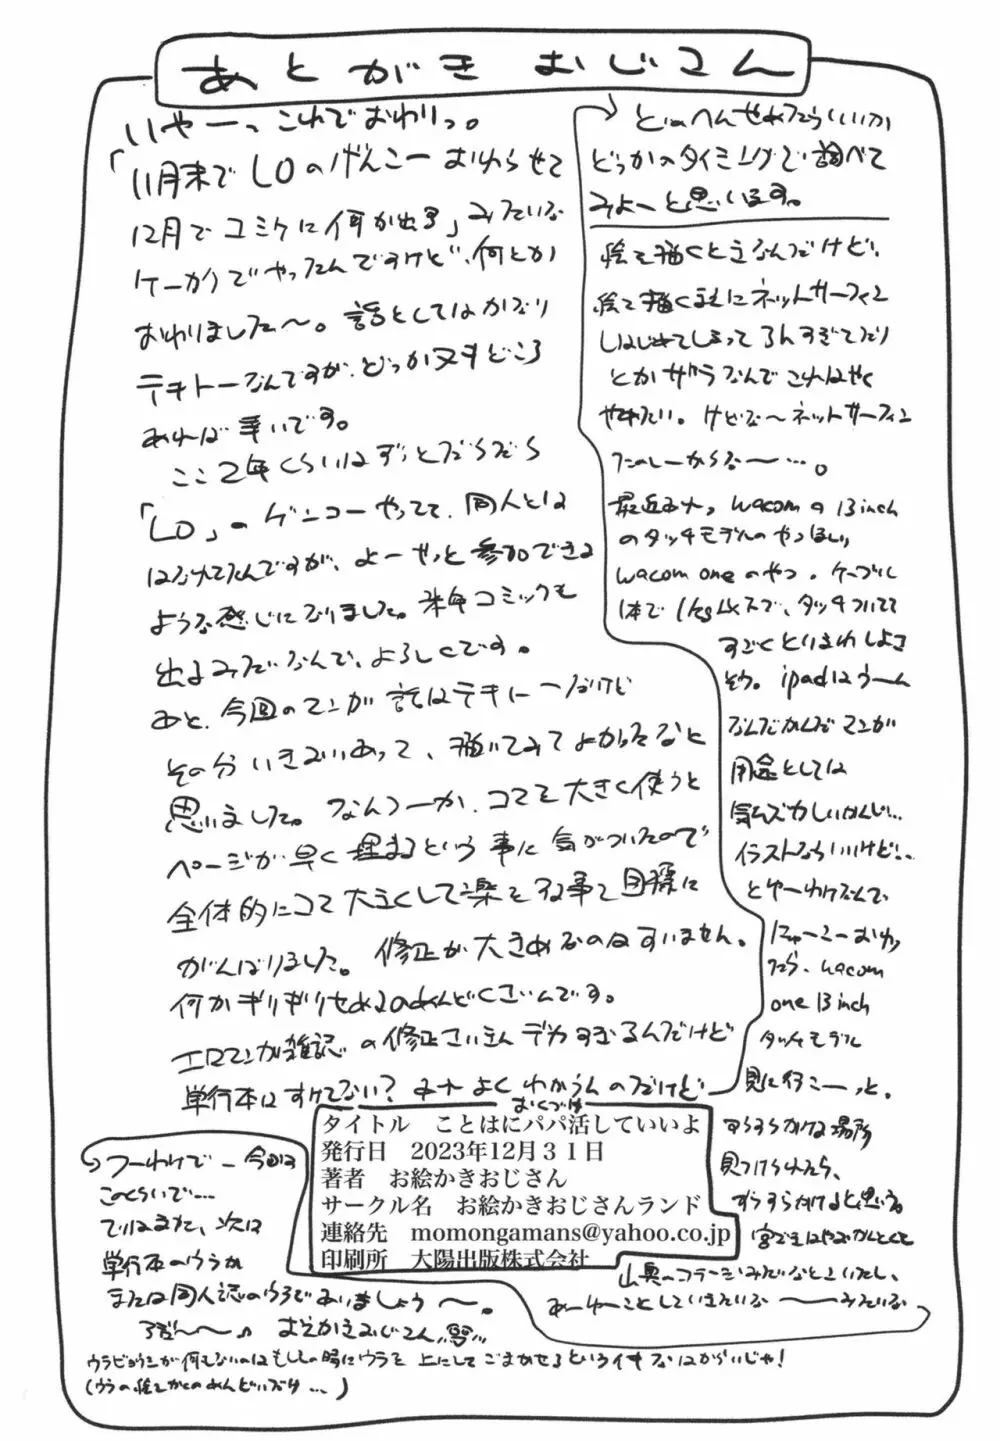 あとがきおじさん
いやーっこれでおわりっ。
「11月末でLOのげんこーおわらせて
12月でコミケに何か出す」みたいな
ケーカクでやってたんですけど、何とか
おわりました〜。話としてはかなり
テキトーなんですが、どっか見どころ
あれば幸いです。
ここ2年くらいはずっとだらだら
「LO」のゲンコーやってて、同人とは
はなれてたんですが、よーやっと参加できる
ような感じになりました。来年コミックも
出るみたいなんで、よろしくです。
あと、今回のマンガ話はテキトーだけど
その分いきおいあって、描いてみてよかったなと
思いました。なんつーか、コマを大きく使うと
ページが早く埋まるという事に気がついたので
全体的にコマ大きくして楽をする事を目標に
がんばりました。修正が大きめなのはすいません。
何かギリギリせめるのめんどくさいんです。
エロマンガ雑誌の修正さいきんデカすぎるんだけど
単行本はすけてない？よくわかんのだけど
どのへんせめたらいいか
どっかのタイミングで調べて
みよーと思います。
絵を描くときなんだけど、
絵を描くまえにネットサーフィン
はじめてしまって3hすぎてたり
とかザラなんでこれはやく
やめたい。けどな〜ネットサーフィン
たのしーからな〜…。
最近さぁ、wacomの13inch
のタッチモデルのやつほしい
wacom oneのやつ。ケーブル
1本で1kg以下で、タッチついてて
すごくとりまわしよさ
そう。ipadはうーん
なんだかんだマンガ
用途としては
ムズカしいかんじ…
イラストならいいけど…
とゆーわけなんで、
にゅーこーおわっ
たら、wacom
one 13 inch
タッチモデル
見に行こーっと。
すらすらかける場所
見つけられたら、
すらすらかけると思うな。
山奥のコテージみたいなとこいたし、
あーゆーことしていきたいなーみたいな
つーわけで、今回は
このくらいで…
ではまた、次は
単行本のウラか
または同人誌のウラであいましょう〜。
おえかきおじさん
ウラビョウシが何もないのはもしもの時にウラを上にしてごまかせるというイキなはからいじゃ！
(ウラの絵をかくのめんどいだけ…)
おくづけ
タイトル　ことはにパパ活していいよ
発行日　2023年12月３１日
著者　お絵かきおじさん
サークル名　お絵かきおじさんランド
連絡先　momongamans@yahoo.co.jp
印刷所　大陽出版株式会社